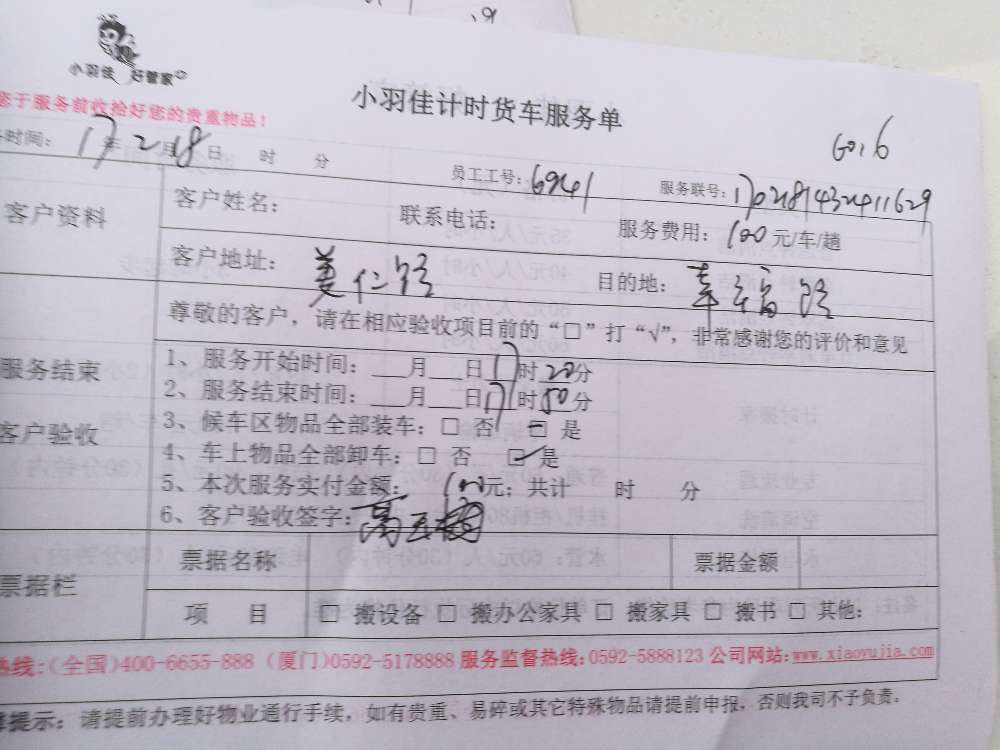 小羽佳 好管家
小羽佳计时货车服务单
您于服务前收拾好您的贵重物品！
60.6
时间： 17年2月18日 时 分 员工工号：6941 服务联号：
客户资料 客户姓名： 联系电话： 服务费用：100元/车/趟
客户地址： 目的地：幸福路
尊敬的客户，请在相应验收项目前的“□”打“√”，非常感谢您的评价和意见
服务结束
客户验收
1、服务开始时间：___月___日17时20分
2、服务结束时间：___月___日17时50分
3、候车区物品全部装车：□ 否 □ 是
4、车上物品全部卸车：□ 否 ☑是
5、本次服务实付金额：100元；共计 时 分
6、客户验收签字：
票据栏 票据名称 票据金额
项 目 □ 搬设备 □ 搬办公家具 □ 搬家具 □ 搬书 □ 其他：
热线：（全国）400-6655-888（厦门）0592-5178888 服务监督热线：0592-5888123 公司网站：www.xiaoyujia.com
提示：请提前办理好物业通行手续，如有贵重、易碎或其它特殊物品请提前申报，否则我司不予负责。